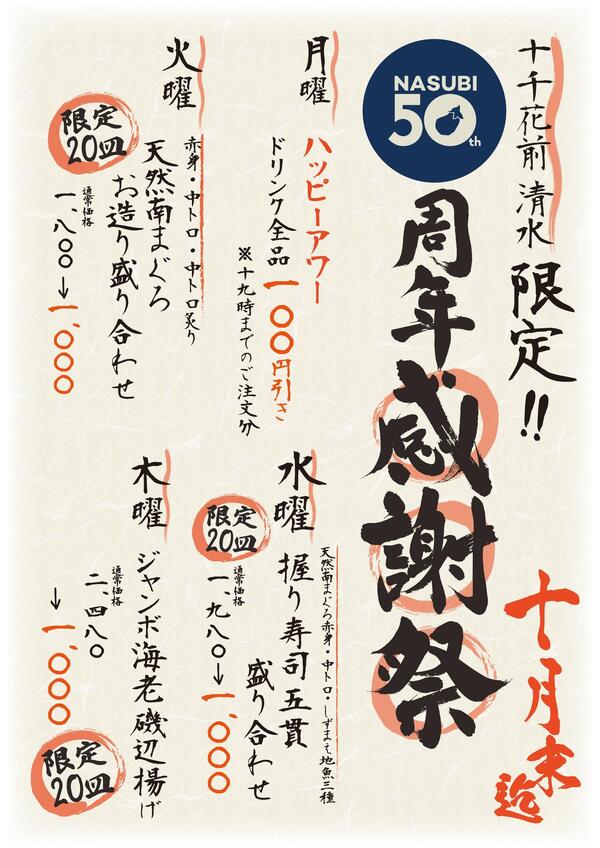 十千花前 清水
限定!!
十月末迄
NASUBI
50th
周年感謝祭
月曜
ハッピーアワー
ドリンク全品一〇〇円引き
※十九時までのご注文分
火曜
赤身・中トロ・中トロ炙り
天然南まぐろ
お造り盛り合わせ
限定
20皿
通常価格
一、八〇〇→一、〇〇〇
水曜
天然南まぐろ赤身・中トロ・しずまえ地魚三種
握り寿司五貫
盛り合わせ
限定
20皿
通常価格
一、九八〇→一、〇〇〇
木曜
ジャンボ海老磯辺揚げ
通常価格
二、四八〇
→一、〇〇〇
限定
20皿